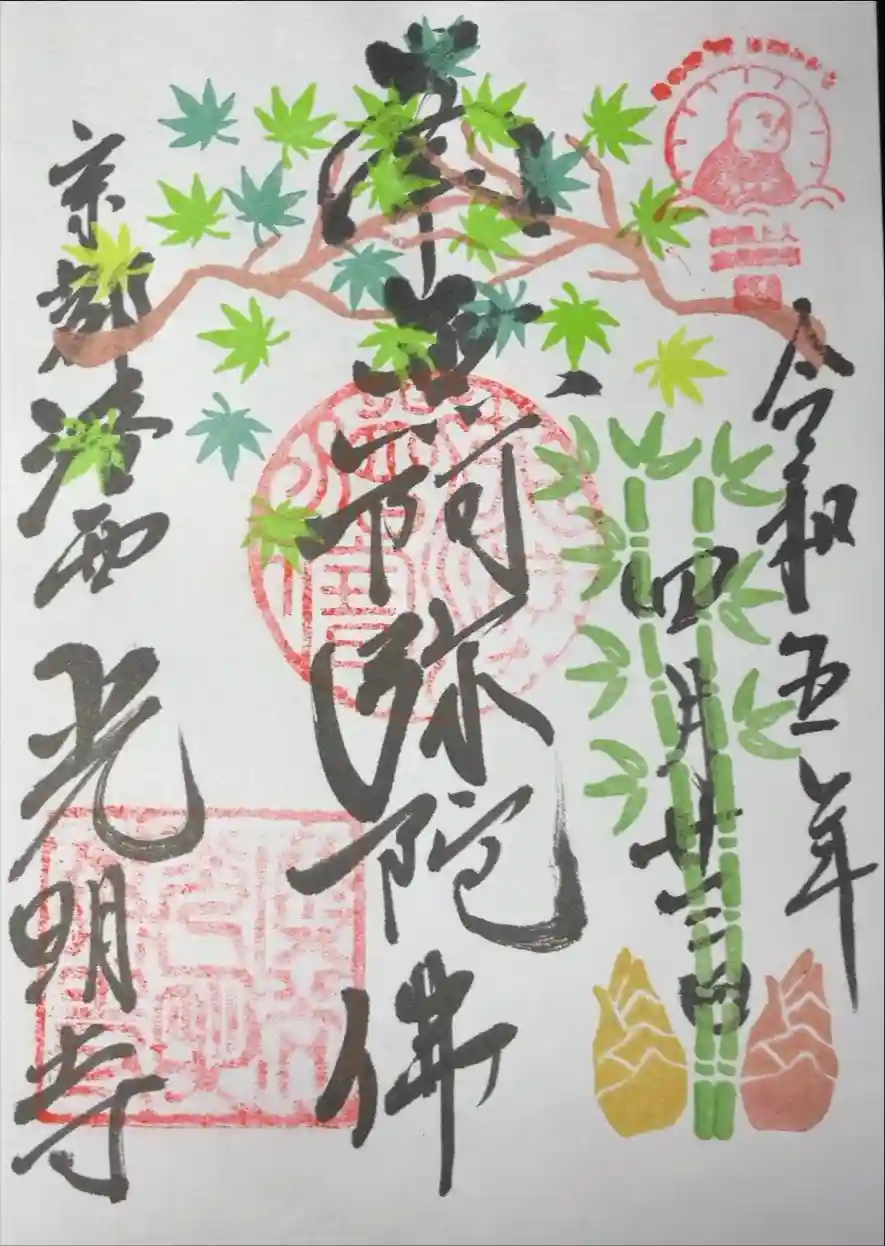 令和五年
四月廿三日
南無阿弥陀佛
京都洛西
光明寺